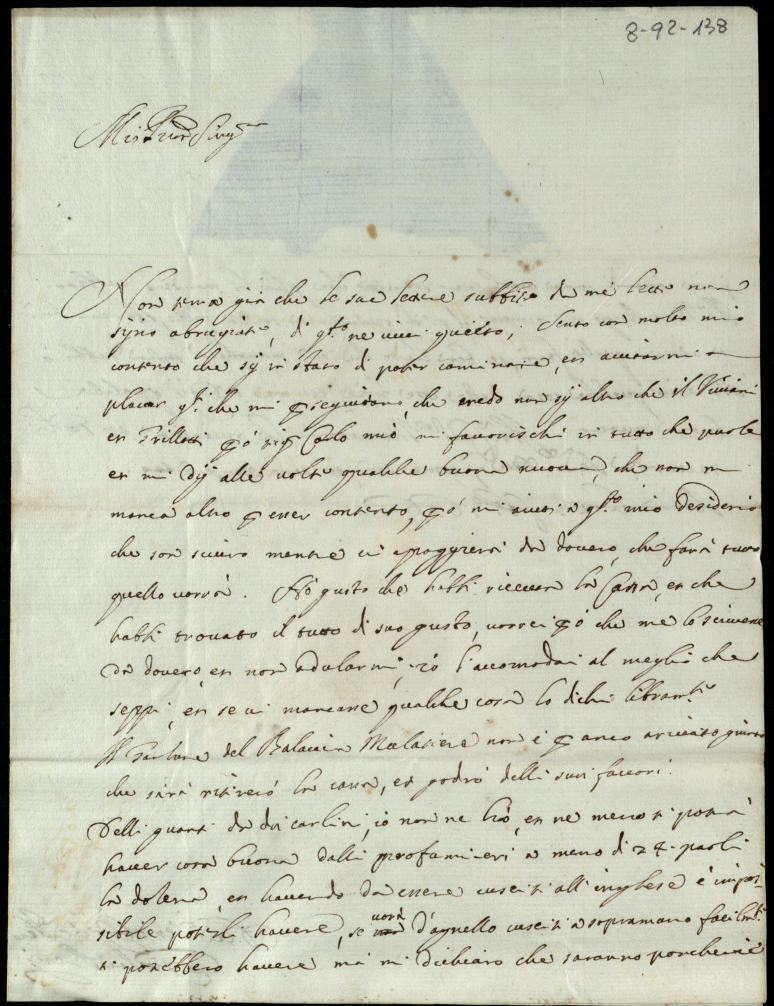 8-92-138
Mio Sing.re
Non tema già che le sue lettere subbito da me lette non
sijno abrugiate, di q.to ne vivi quieto; Sento con molto mio
contento che sij in stato di poter caminare, et aiutarmi a
placar q.i che mi p̱seguitano, che credo non sij altro che il Viviani
et Grillotti p̱ò sig.r Carlo mio mi favorischi in tutto che puole
et mi dij alle volte qualche buona nuova, che non mi
manca altro p̱ esser contento, p̱ò mi aiuti a q.sto mio desiderio
che son sicuro mentre vi appoggierà da dovero, che farà tutto
quello vorrà. Hò gusto che habbi riceuta la Cassa, et che
habbi trovato il tutto di suo gusto, vorrei p̱ò che me lo scrivesse
da dovero, et non adularmi, iò l'accomodai al meglio che
seppi, et se vi mancasse qualche cosa lo dichi librant.e
Il Padrone del non è p̱ anco arivato giunto
che sarà ritirerò la cassa, et godrò delli suoi favori.
Delli guanti da doi carlini, iò non ne hò, et ne meno si potrà
haver cosa buona dalli profumieri a meno di 24 paoli
la dozena, et havendo da essere cusciti all'inglese è impos-
sibile poterli havere, se vorà d'agnello cusciti a sopramano facilm.te
si potrebbero havere mà mi dichiaro che saranno porcherie